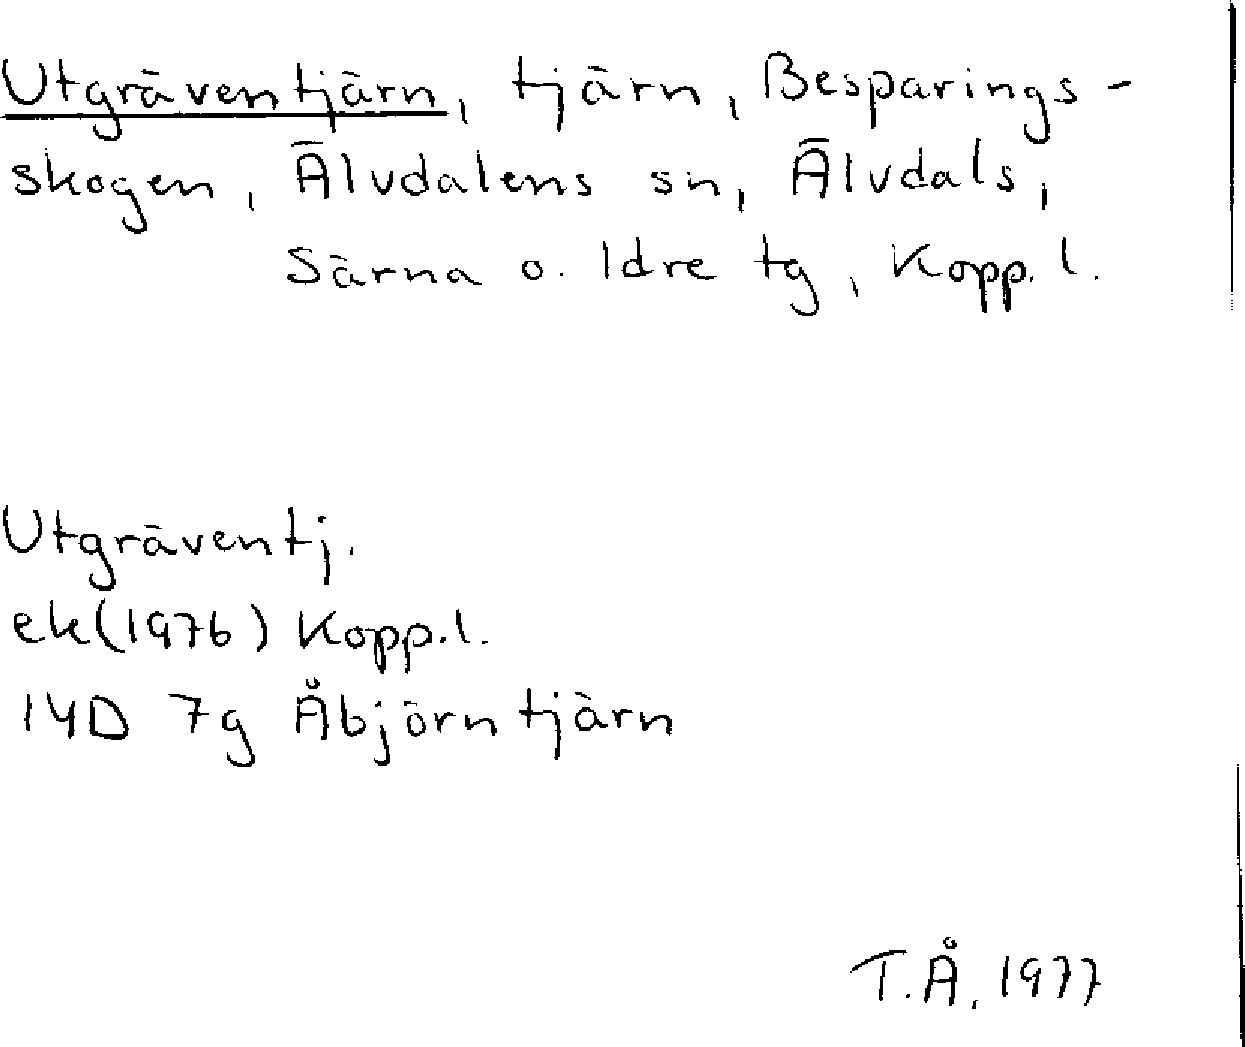 Utgräventjärn, tjärn, Besparings-
skogen, Älvdalens sn, Älvdals,
Särna o. Idre tg, Kopp. l.
Utgräventj.
ek(1976) Kopp.l.
14D 7g Åbjörntjärn
T.Å. 1977